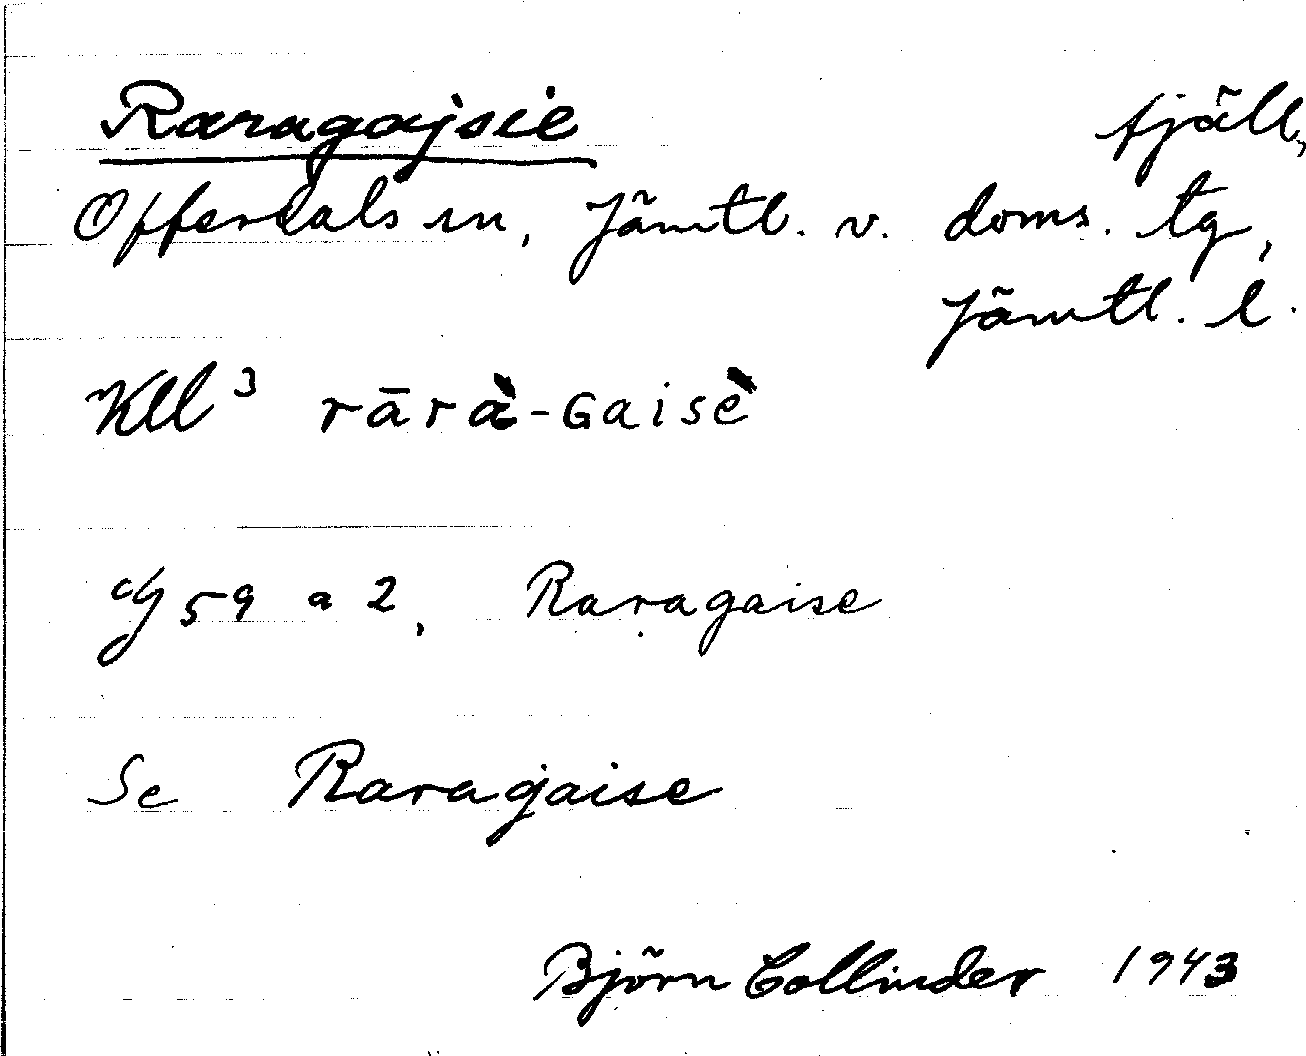 Raragajsie fjäll,
Offerdals sn, Jämtl. v. doms. tg,
Jämtl. l.
Kll³ rārὰ-Gaisè
G 59 a 2, Raragaise
Se Raragaise
Björn Collinder 1943